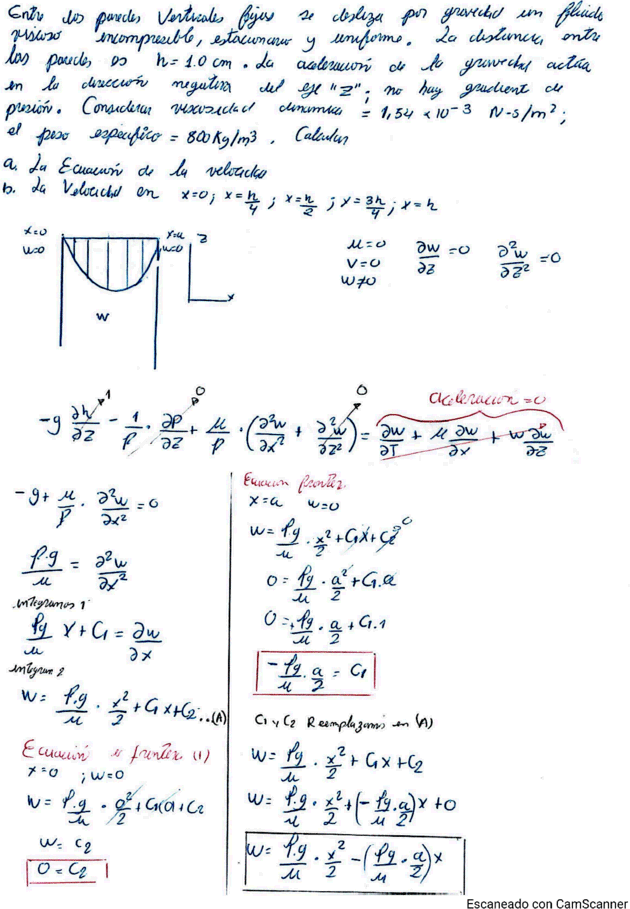 Entre dos paredes Verticales fijas se desliza por gravedad un fluido
viscoso incompresible, estacionario y uniforme. La distancia entre
las paredes es h = 1.0 cm. La aceleración de la gravedad actúa
en la dirección negativa del eje "Z"; no hay gradient de
presión. Considerar viscosidad dinamica = 1,54 x 10⁻³ N-s/m²;
el peso especifico = 800 Kg/m³. Calcular
a. La Ecuación de la velocidad
b. La Velocidad en x=0; x=h/4; x=h/2; x=3h/4; x=h
x=0
w=0
x=a
w=0
z
x
w
u=0
v=0
w≠0
∂w/∂z = 0
∂²w/∂z² = 0
aceleracion = 0
-g ∂h/∂z ↗1 - 1/ρ · ∂P/∂z ↗0 + μ/ρ · (∂²w/∂x² + ∂²w/∂z² ↗0) = ∂w/∂T + u ∂w/∂x + w ∂w/∂z
-g + μ/ρ · ∂²w/∂x² = 0
ρ.g/μ = ∂²w/∂x²
integramos 1
ρg/μ x + C1 = ∂w/∂x
integram 2
w = ρ.g/μ · x²/2 + C1x + C2 ...(A)
Ecuación de frontera (1)
x=0 ; w=0
w = ρ.g/μ · 0²/2 + C1(0) + C2
w = C2
0 = C2
Ecuacion frontera
x=a w=0
w = ρg/μ · x²/2 + C1x + C2 ↗0
0 = ρg/μ · a²/2 + C1.a
0 = ρg/μ · a/2 + C1.1
-ρg/μ · a/2 = C1
C1 y C2 Reemplazamos en (A)
w = ρg/μ · x²/2 + C1x + C2
w = ρ.g/μ · x²/2 + (-ρg/μ · a/2)x + 0
w = ρ.g/μ · x²/2 - (ρg/μ · a/2)x
Escaneado con CamScanner